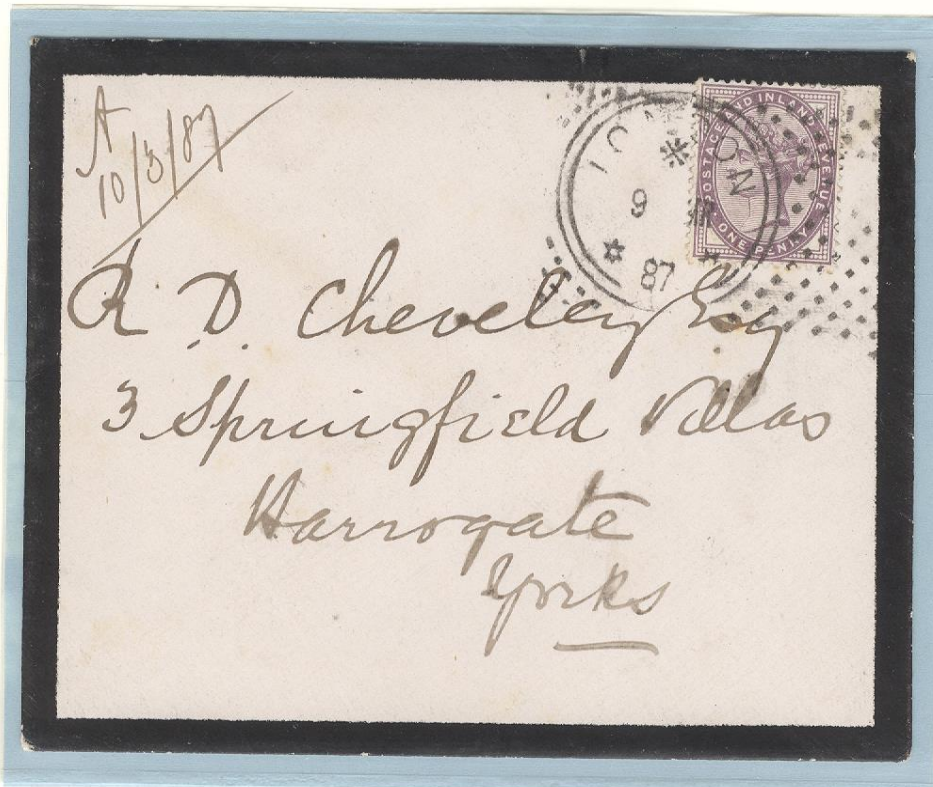 A
10/3/87
LONDON
9
87
POSTAGE AND INLAND REVENUE
ONE PENNY
R. D. Cheveley Esq
3 Springfield Villas
Harrogate
Yorks